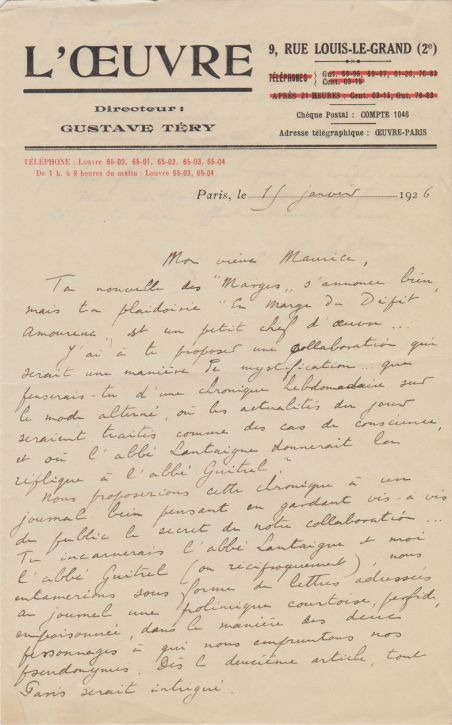 L'ŒUVRE
Directeur :
GUSTAVE TÉRY
9, RUE LOUIS-LE-GRAND (2e)
TÉLÉPHONES { Gut. 59-96, 59-97, 01-20, 76-83
Cent. 03-15
APRÈS 21 HEURES : Cent. 03-15, Gut. 76-83
Chèque Postal : COMPTE 1046
Adresse télégraphique : ŒUVRE-PARIS
TÉLÉPHONE : Louvre 65-00, 65-01, 65-02, 65-03, 65-04
De 1 h. à 9 heures du matin : Louvre 65-03, 65-04
Paris, le 15 janvier 1926
Mon vieux Maurice,
Ta nouvelle des "Marges" s'annonce bien,
mais ta plaidoirie "En marge du Dépit
Amoureux" est un petit chef d'œuvre...
J'ai à te proposer une collaboration qui
serait une manière de mystification... que
penserais-tu d'une chronique hebdomadaire sur
le mode alterné, où les actualités du jour
seraient traités comme des cas de conscience,
et où l'abbé Lantaigne donnerait la
réplique à l'abbé Guitrel ?
Nous proposerions cette chronique à un
journal bien pensant en gardant vis-à-vis
du public le secret de notre collaboration...
Tu incarnerais l'abbé Lantaigne et moi
l'abbé Guitrel (ou réciproquement), nous
entamerions sous forme de lettres adressées
au journal une polémique courtoise, perfide,
empoisonnée, dans la manière des deux
personnages à qui nous empruntons nos
pseudonymes. Dès le deuxième article, tout
Paris serait intrigué.